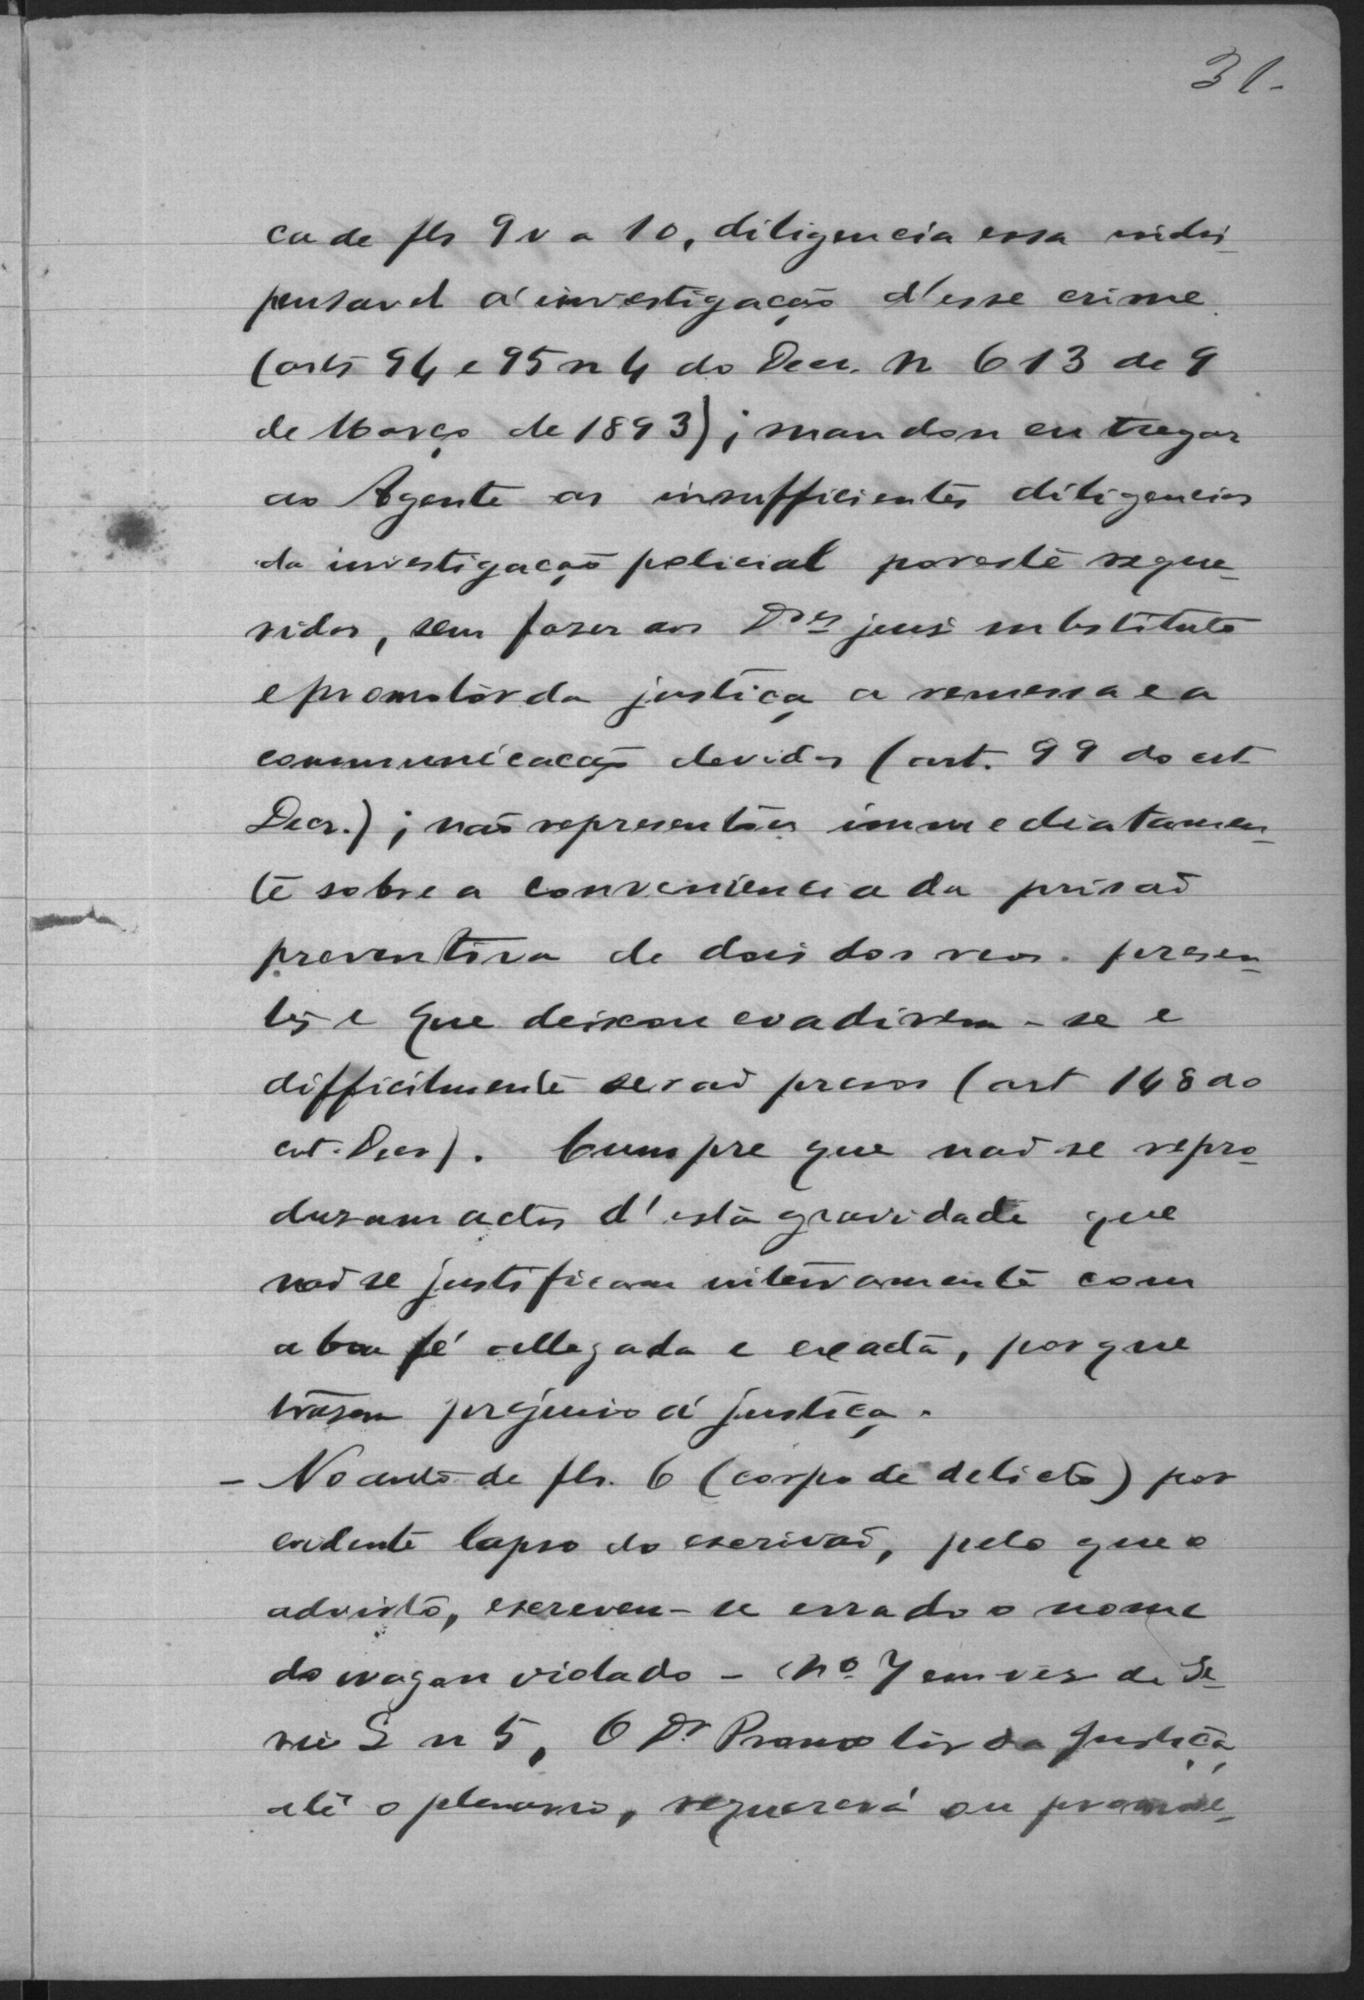 31.
ca de fls 9 v a 10, diligencia essa indis-
pensavel á investigação d'esse crime
(arts 94 e 95 n 4 do Decr. N 613 de 9
de Março de 1893); mandou entregar
ao Agente as insufficientes diligencias
da investigação policial por este reque-
ridas, sem fazer aos Drs juis substituto
e promotor da justiça a remessa e a
communicação devidas (art. 99 do cit
Decr.); não representou immediatamen-
te sobre a conveniencia da prisão
preventiva de dois dos reos presen-
tes e que deixou evadirem-se e
difficilmente serão presos (art 148 do
cit. Decr). Cumpre que não se repro-
dusam actos d'esta gravidade que
não se justificam inteiramente com
a boa fé allegada e exacta, porque
trasem prejuiso á justiça.
- No auto de fls. 6 (corpo de delicto) por
evidente lapso do escrivão, pelo que o
advirto, escreveu-se errado o nome
do wagon violado - Nº 7 em ves de Se-
rie S n 5, O Dr Promotor da Justiça,
até o plenario, requererá ou promove-